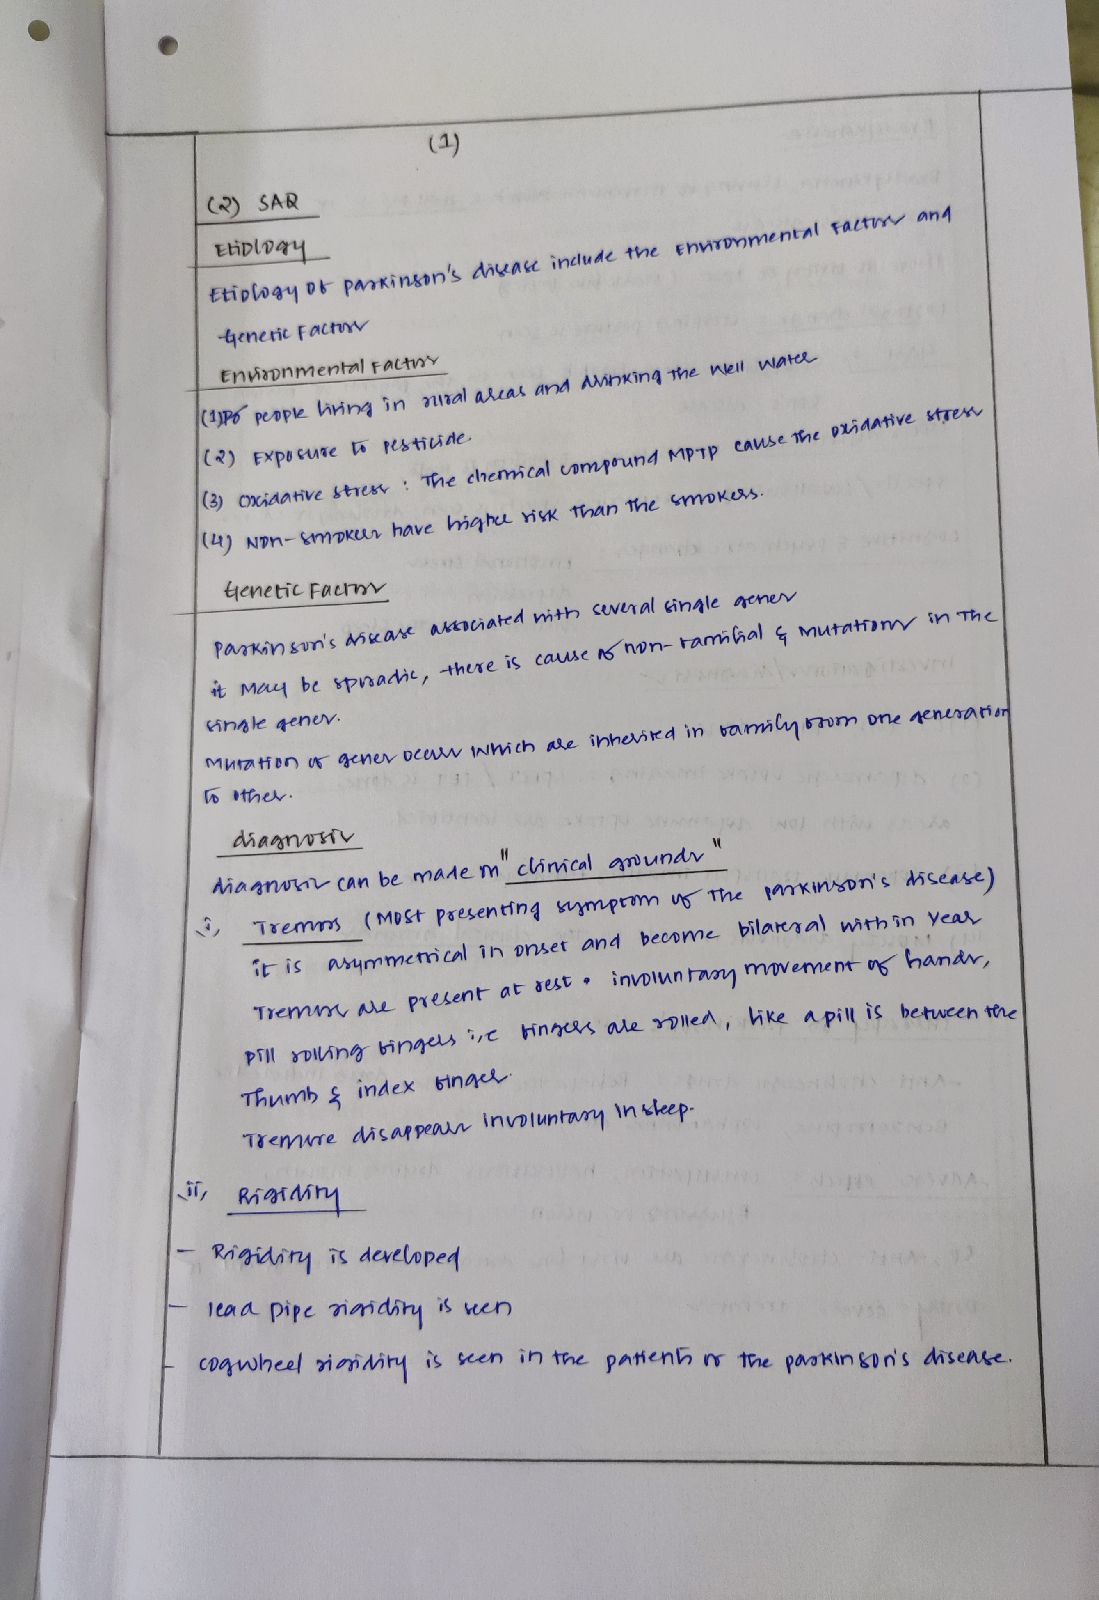 (1)
(2) SAQ
Etiology
Etiology of parkinson's disease include the Environmental Factors and
Genetic Factors
Environmental Factors
(1) people living in rural areas and drinking the well water
(2) Exposure to pesticide.
(3) Oxidative stress : The chemical compound MPTP cause the oxidative stress
(4) Non-smokers have higher risk than the smokers.
Genetic Factors
Parkinson's disease associated with several single genes
it may be sporadic, there is cause of non-familial & mutations in the
single genes.
Mutation of genes occurs which are inherited in family from one generation
to other.
diagnosis
diagnosis can be made on "clinical grounds"
i, Tremors (Most presenting symptom of the parkinson's disease)
it is asymmetrical in onset and become bilateral within year
Tremors are present at rest. involuntary movement of hands,
pill rolling fingers i,e fingers are rolled, like a pill is between the
Thumb & index finger.
Tremors disappears involuntary in sleep.
ii, Rigidity
- Rigidity is developed
- lead pipe rigidity is seen
- cogwheel rigidity is seen in the patients of the parkinson's disease.